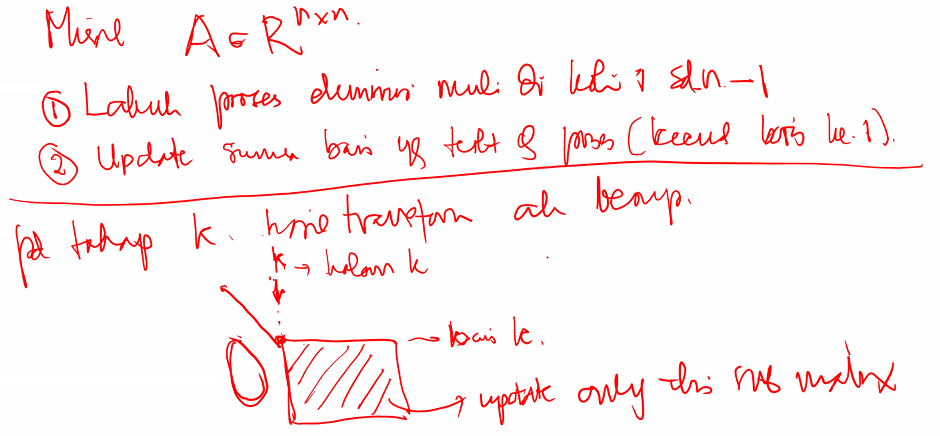 Misal A ∈ R^{n×n}.
① Lakuk proses eliminasi mulai dr kolom 1 sd n-1
② Update semua baris yg terkt dg proses (kecuali baris ke-1).
pd tahap k. hasil transform akn berup.
k → kolom k
→ baris k.
O
→ update only this sub matrix